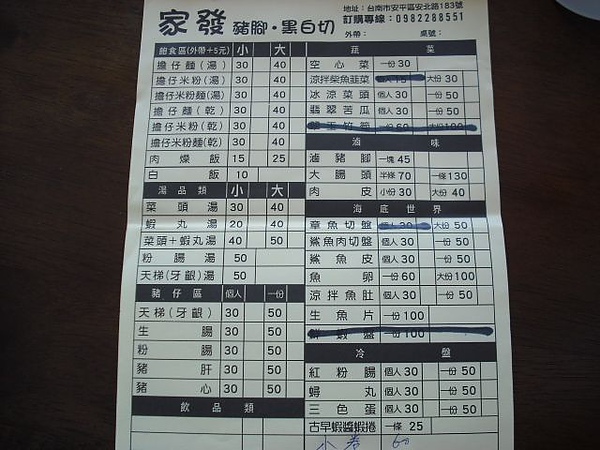 家發 豬腳・黑白切
地址：台南市安平區安北路183號
訂購專線：0982288551
外帶： 桌號：
飽食區(外帶+5元) 小 大
擔仔麵(湯) 30 40
擔仔米粉(湯) 30 40
擔仔米粉麵(湯) 30 40
擔仔麵(乾) 30 40
擔仔米粉(乾) 30 40
擔仔米粉麵(乾) 30 40
肉燥飯 15 25
白飯 10
湯品類 小 大
菜頭湯 30 40
蝦丸湯 20 40
菜頭+蝦丸湯 40 50
粉腸湯 50
天梯(牙齦)湯 50
豬仔區 個人 一份
天梯(牙齦) 30 50
生腸 30 50
粉腸 30 50
豬肝 30 50
豬心 30 50
飲品類
蔬菜
空心菜 一份30
涼拌柴魚韮菜 大份30
冰涼菜頭 個人30 一份50
翡翠苦瓜 個人30 一份50
一份60 大份100
滷味
滷豬腳 一塊45
大腸頭 半條70 一條130
肉皮 小份30 大份40
海底世界
章魚切盤 個人30 大份50
鯊魚肉切盤 個人30 一份50
鯊魚皮 個人30 一份50
魚卵 一份60 大份100
涼拌魚肚 個人30 一份50
生魚片 一份100
鮮蝦盤 一份100
冷盤
紅粉腸 個人30 一份50
蟳丸 個人30 一份50
三色蛋 個人30 一份50
古早蝦醬蝦捲 一條25
小卷 60